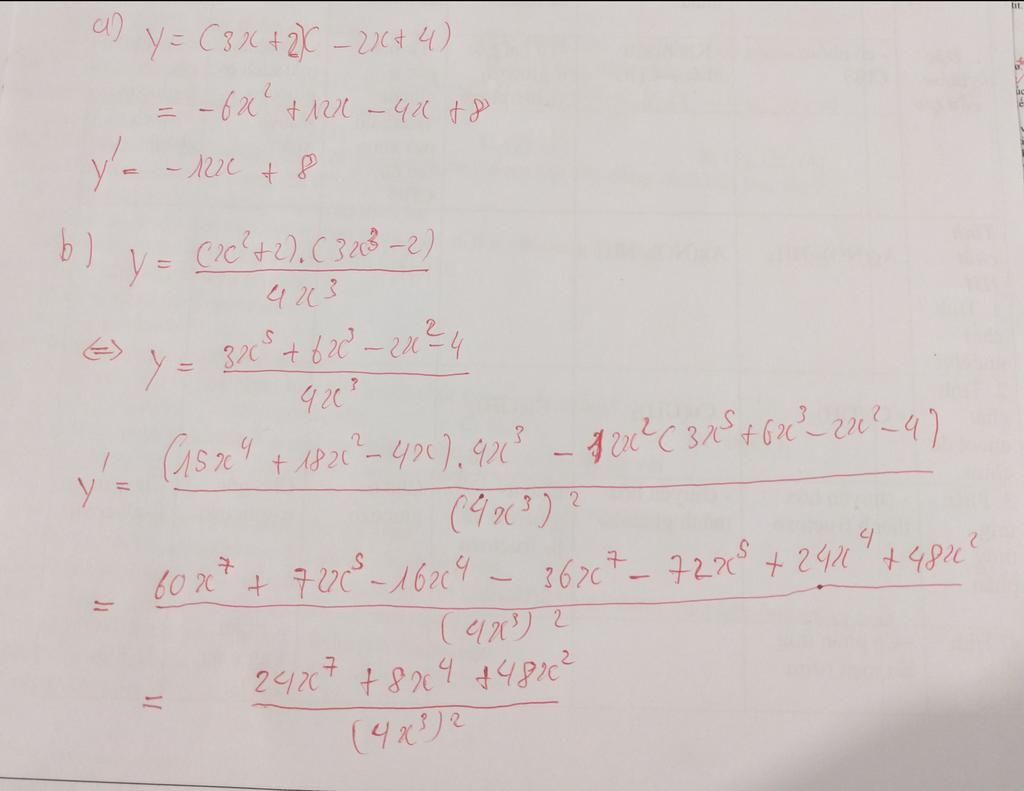 a) y = (3x+2)(-2x+4)
= -6x² + 12x - 4x + 8
y' = -12x + 8
b) y = (x²+2).(3x³-2) / 4x³
⇔ y = 3x⁵ + 6x³ - 2x² - 4 / 4x³
y' = (15x⁴ + 18x² - 4x).4x³ - 12x²(3x⁵ + 6x³ - 2x² - 4) / (4x³)²
= 60x⁷ + 72x⁵ - 16x⁴ - 36x⁷ - 72x⁵ + 24x⁴ + 48x² / (4x³)²
= 24x⁷ + 8x⁴ + 48x² / (4x³)²